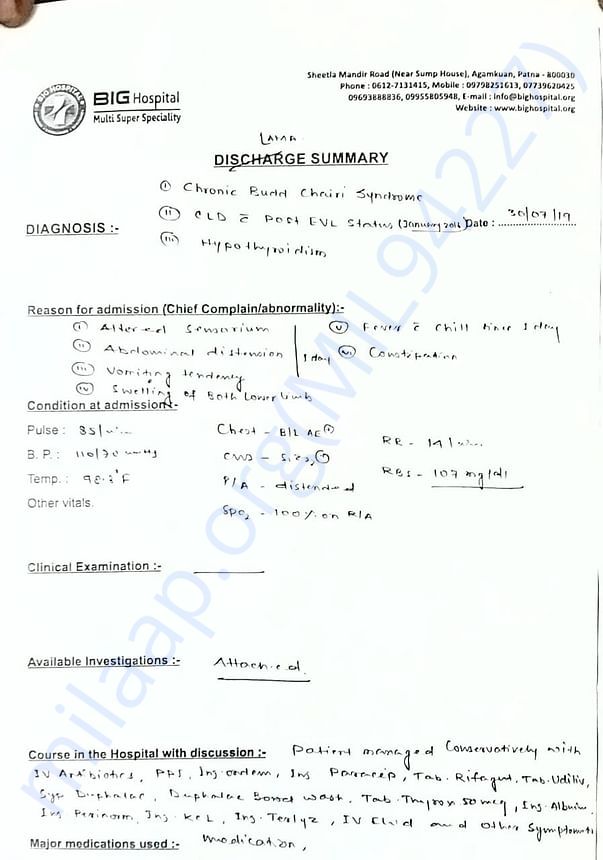 Sheetla Mandir Road (Near Sump House), Agamkuan, Patna - 800030
Phone : 0612-7131415, Mobile : 09798251613, 07739620425
09693888836, 09955805948, E-mail : info@bighospital.org
Website : www.bighospital.org
BIG HOSPITAL
BIG Hospital
Multi Super Speciality
LAMA
DISCHARGE SUMMARY
DIAGNOSIS :-
(i) Chronic Budd Chairi Syndrome
(ii) CLD c̄ Post EVL Status (January 2016) Date : 30/07/19
(iii) Hypothyroidism
Reason for admission (Chief Complain/abnormality):-
(i) Altered Sensorium
(ii) Abdominal distension
(iii) Vomiting tendency
(iv) Swelling of Both Lower limb
1 day
(v) Fever c̄ chill since 1 day
(vi) Constipation
Condition at admission:-
Pulse : 85/min
B. P. : 110/70 mmHg
Temp. : 98.2°F
Other vitals.
Chest - B/L AE (+)
CVS - S1S2 (+)
P/A - distended
SpO2 - 100% on R/A
RR - 14/min
RBS - 107 mg/dl
Clinical Examination :-
Available Investigations :- Attached.
Course in the Hospital with discussion :- Patient managed Conservatively with
IV Antibiotics, PPI, Inj. Paracip, Tab. Rifagut, Tab. Udiliv,
Syp Duphalac, Duphalac Bowel wash, Tab. Thyrox 50 mcg, Inj. Albumin,
Inj. Perinorm, Inj. KCL, Inj. Terlyz, IV fluid and other Symptomatic
Major medications used :- medication,
milaap.org(MIL94227)